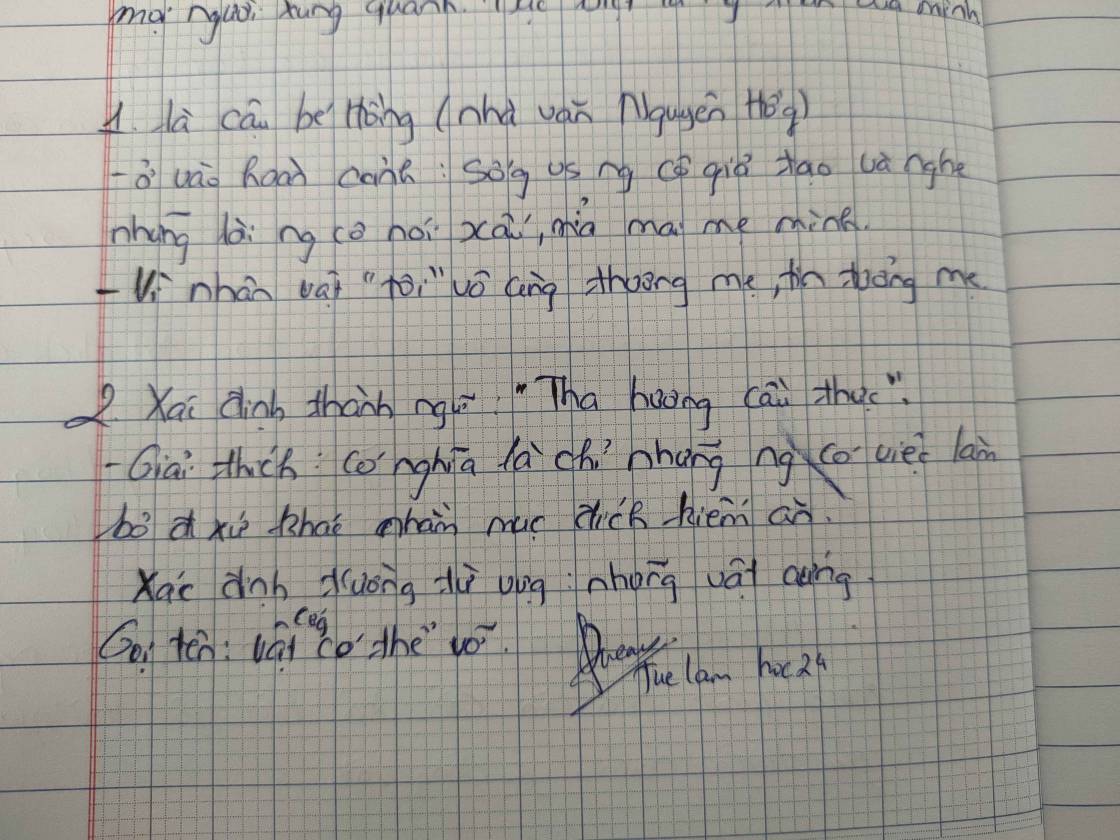 mọi người xung quanh. minh
1. là cậu bé Hồng (nhà văn Nguyên Hồg)
- ở vào hoàn cảnh: Sốg vs ng cô giả tạo và nghe
những lời ng cô nói xấu, mỉa mai mẹ mình.
- Vì nhân vật "tôi" vô cùng thương mẹ, tin tưởng mẹ
2. Xác định thành ngữ: "Tha hương cầu thực".
- Giải thích: có nghĩa là chỉ những ng có việc làm
bỏ đi xứ khác nhằm mục đích kiếm ăn.
Xác định trường từ vựg: những vật cứng.
Gọi tên: vật cứg có thể vỡ.
Tue lam hoc 24